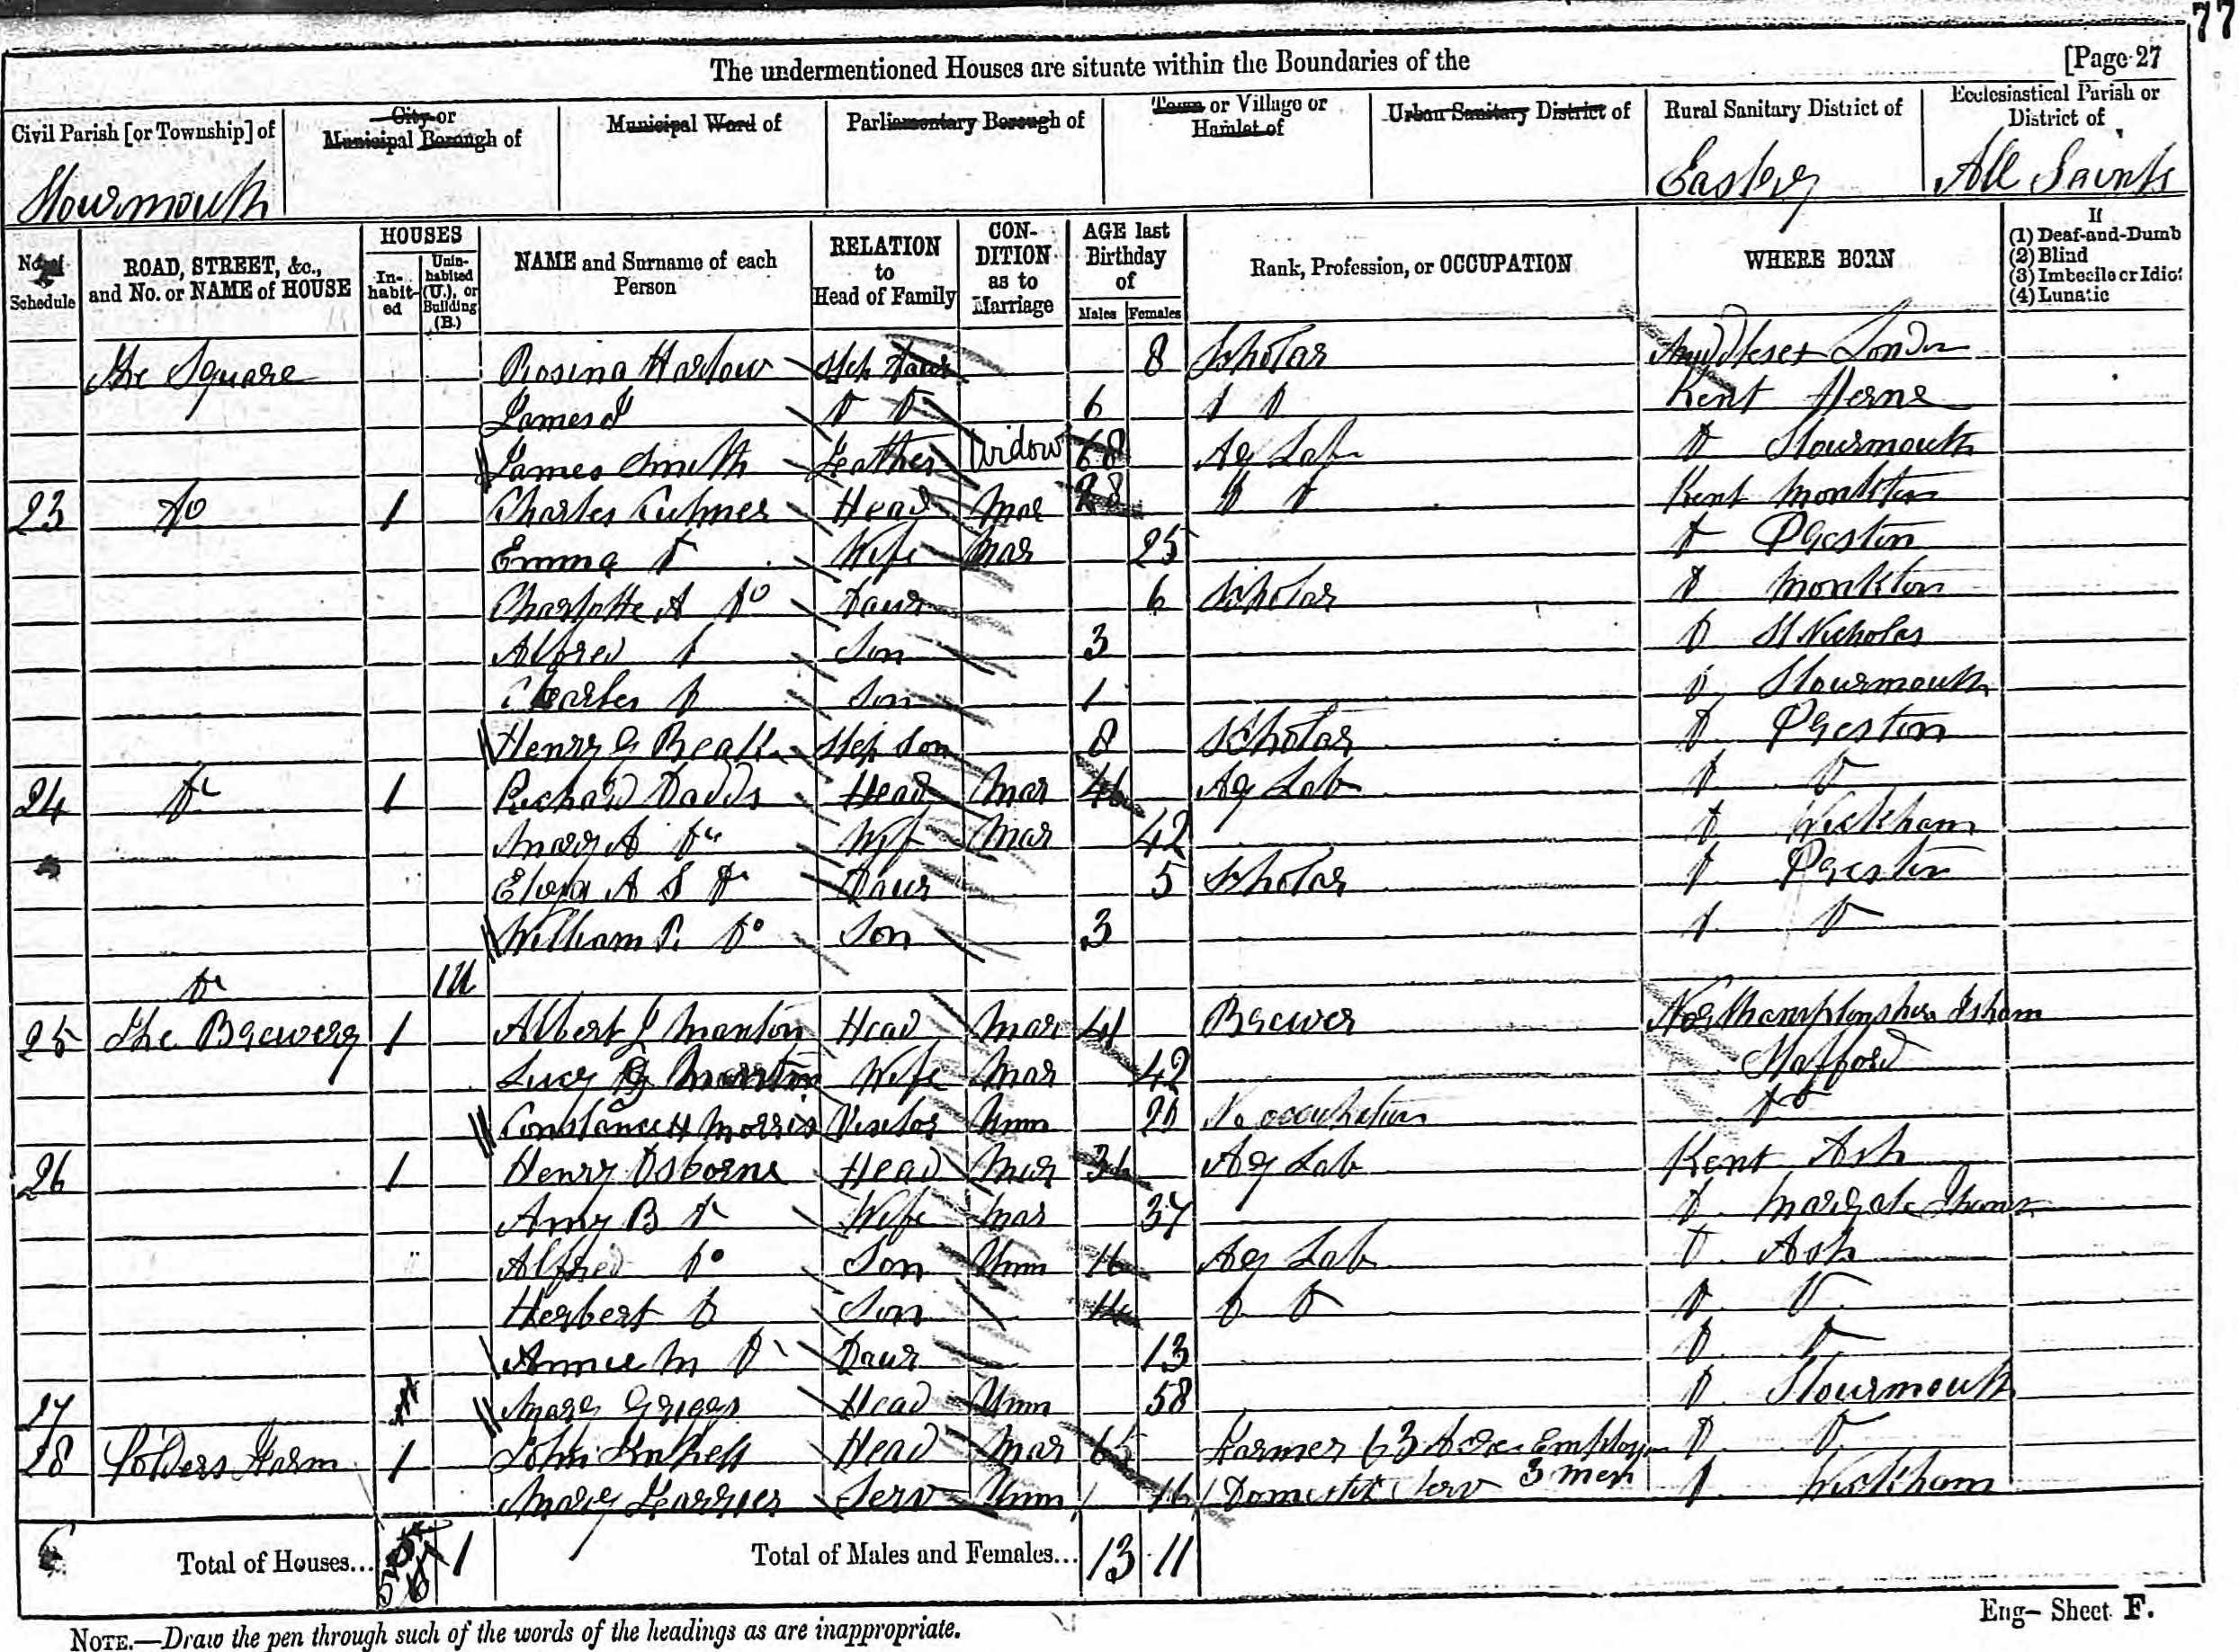 77
The undermentioned Houses are situate within the Boundaries of the [Page 27
Civil Parish [or Township] of
City or Municipal Borough of
Municipal Ward of
Parliamentary Borough of
Town or Village or Hamlet of
Urban Sanitary District of
Rural Sanitary District of
Ecclesiastical Parish or District of
Stourmouth Eastry All Saints
No. of Schedule
ROAD, STREET, &c., and No. or NAME of HOUSE
HOUSES
In-habit-ed
Unin-habited (U.), or Building (B.)
NAME and Surname of each Person
RELATION to Head of Family
CON-DITION as to Marriage
AGE last Birthday of
Males Females
Rank, Profession, or OCCUPATION
WHERE BORN
If
(1) Deaf-and-Dumb
(2) Blind
(3) Imbecile or Idiot
(4) Lunatic
The Square Rosina Harlow Step Daur 8 Scholar Middlesex London
James Do Do 6 Do Do Kent Herne
James Smith Father Widow 68 Ag Lab Do Stourmouth
23 Do 1 Charles Culmer Head Mar 28 Do Do Kent Monkton
Emma Do Wife Mar 25 Do Preston
Charlotte A Do Daur 6 Scholar Do Monkton
Alfred Do Son 3 Do St Nicholas
Charles Do Son 1 Do Stourmouth
Henry G Step Son 8 Scholar Do Preston
24 Do 1 Richard Dadds Head Mar Ag Lab Do Do
Mary A Do Wife Mar 42 Do Wickham
A S Do Daur 5 Scholar Do Preston
William R Do Son 3 Do Do
Do 1U
25 The Brewery 1 Albert J Manton Head Mar 41 Brewer Northamptonshire Isham
Lucy Manton Wife Mar 42 Stafford
Constance H Morris Visitor Unm No occupation Do
26 1 Henry Osborne Head Mar 36 Ag Lab Kent Ash
Amy B Do Wife Mar 37 Do Margate
Alfred Do Son Unm 16 Ag Lab Do Ash
Herbert Do Son 14 Do Do Do Do
Annie M Do Daur 13 Do Do
27 Mary Griggs Head Unm 58 Do Stourmouth
28 Polders Farm 1 John Head Mar 65 Farmer 63 Acres Employ 3 men Do Do
Mary Serv Unm 16 Domestic Serv Do Wickham
Total of Houses... 1 Total of Males and Females... 13 11
Eng— Sheet F.
NOTE.—Draw the pen through such of the words of the headings as are inappropriate.